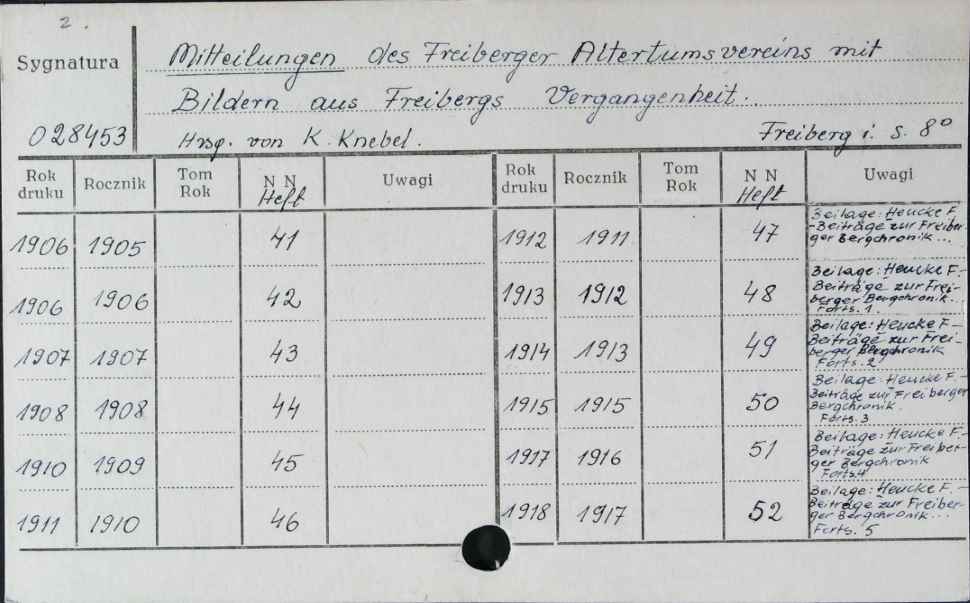 2.
Sygnatura
Mitteilungen des Freiberger Altertumsvereins mit
Bildern aus Freibergs Vergangenheit.
028453 Hrsg. von K. Knebel. Freiberg i. S. 8°
Rok druku Rocznik Tom Rok N N Heft Uwagi Rok druku Rocznik Tom Rok N N Heft Uwagi
1906 1905 41
1906 1906 42
1907 1907 43
1908 1908 44
1910 1909 45
1911 1910 46
1912 1911 47 Beilage: Heucke F.
-Beiträge zur Freiber-
ger Bergchronik...
1913 1912 48 Beilage: Heucke F.-
Beiträge zur Frei-
berger Bergchronik...
Forts. 1.
1914 1913 49 Beilage: Heucke F-
Beiträge zur Frei-
berger Bergchronik
Forts. 2
1915 1915 50 Beilage: Heucke F.-
Beiträge zur Freiberger
Bergchronik.
Forts. 3
1917 1916 51 Beilage: Heucke F.-
Beiträge zur Freiber-
ger Bergchronik
Forts. 4
1918 1917 52 Beilage: Heucke F.-
Beiträge zur Freiber-
ger Bergchronik...
Forts. 5